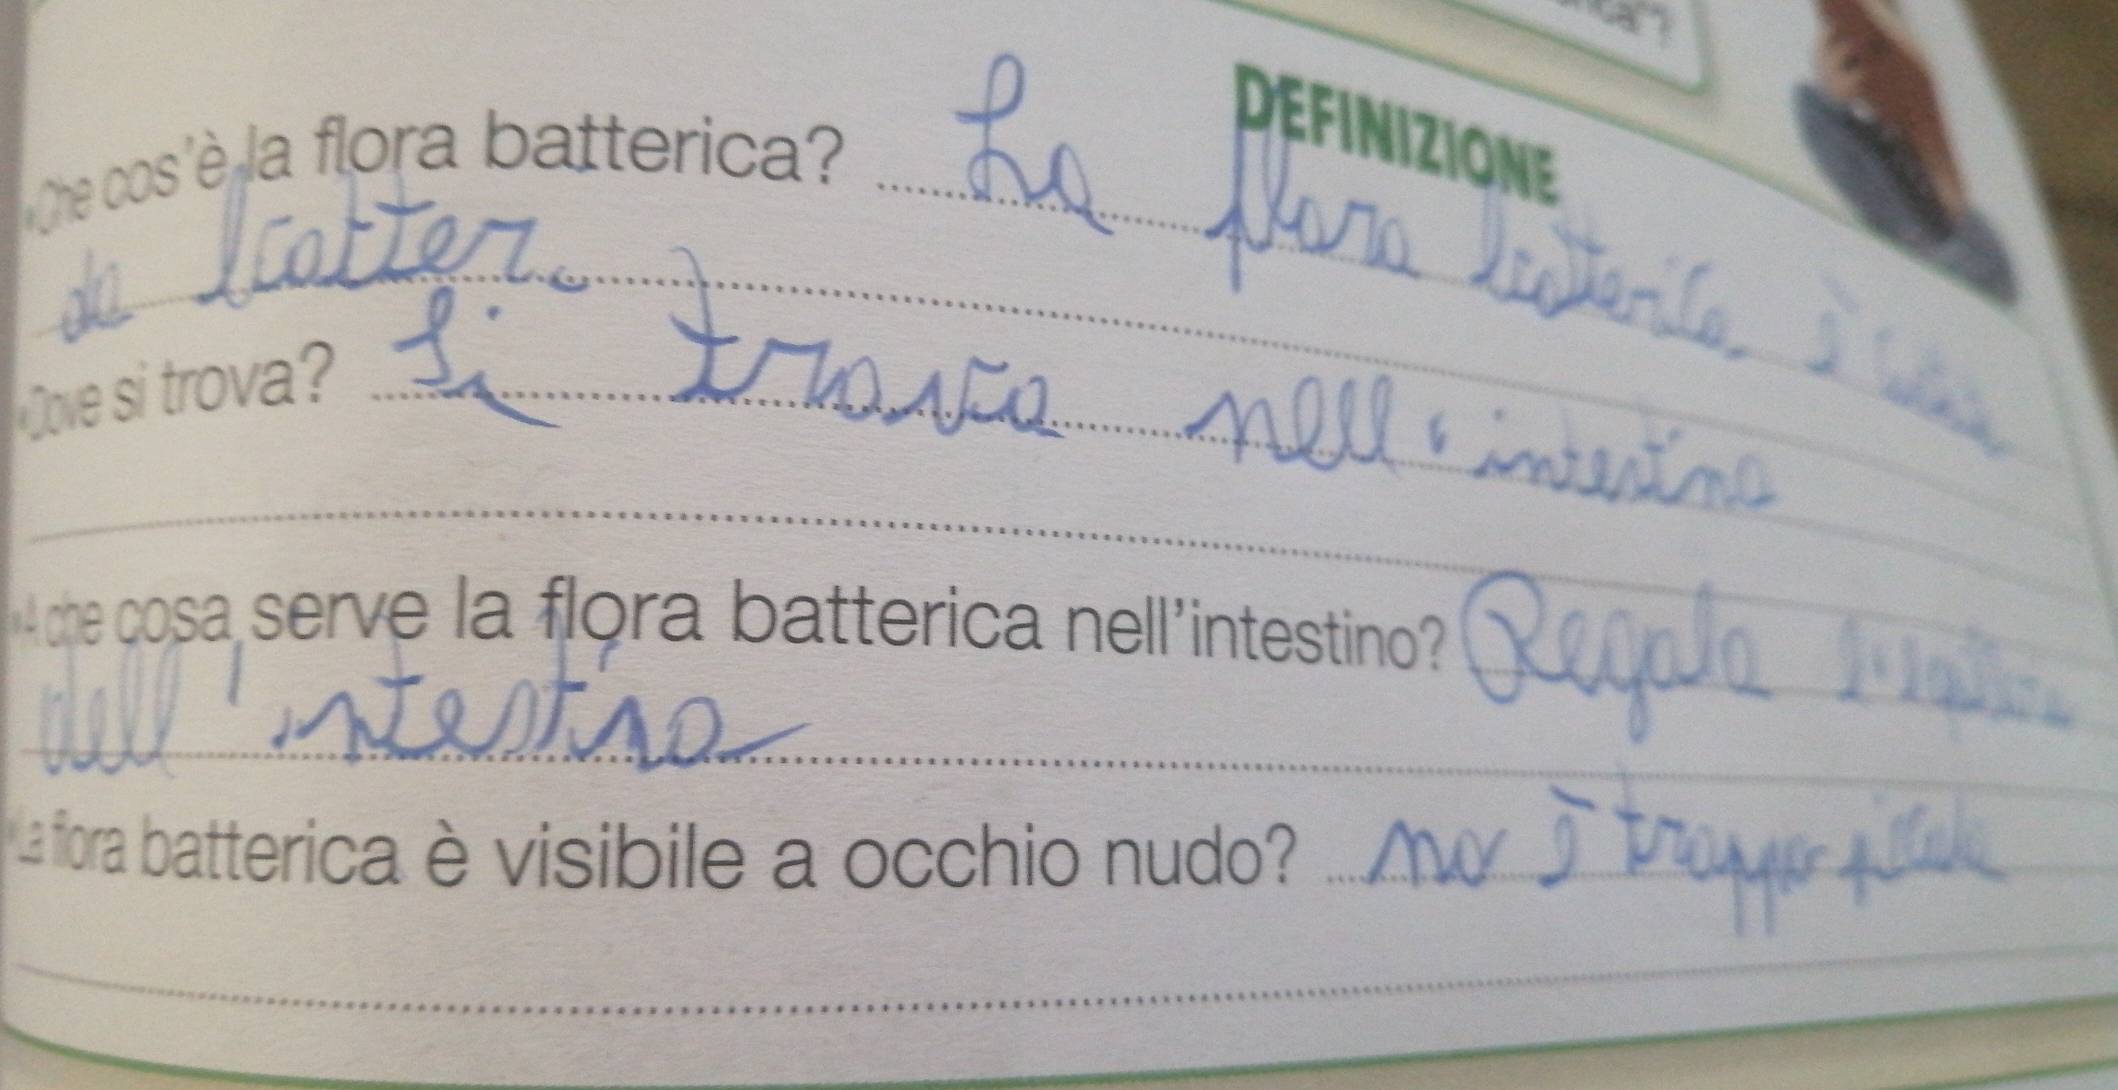 DEFINIZIONE
•Che cos'è la flora batterica? La flora batterica è
da batter.
•Dove si trova? Si trova nell'intestino
•A che cosa serve la flora batterica nell'intestino? Regola
dell'intestino
•La flora batterica è visibile a occhio nudo? no è troppo